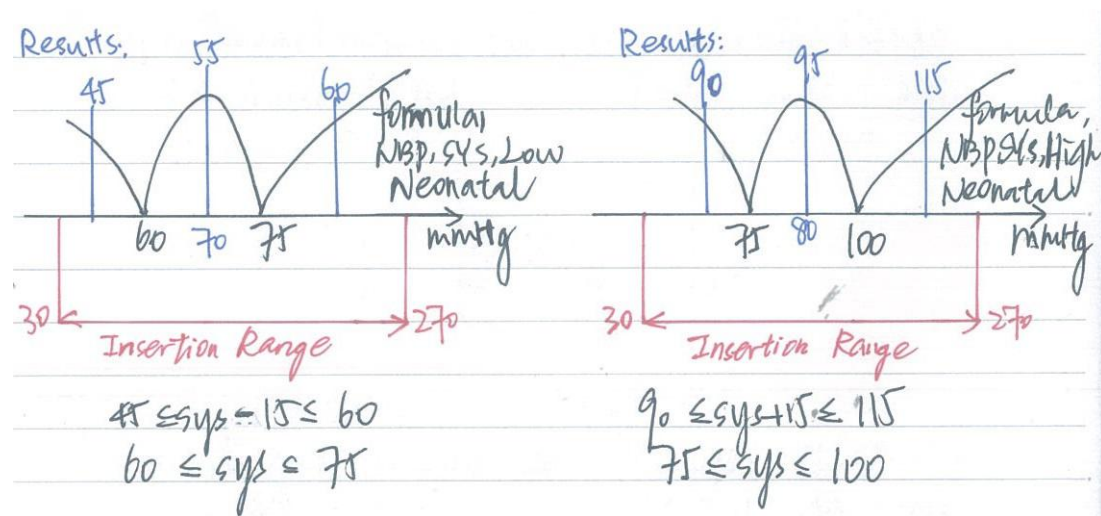 Results:
55
45
60
formula,
NBP, SYS, Low
Neonatal
60 70 75 mmHg
30 270
Insertion Range
45 ≤ sys - 15 ≤ 60
60 ≤ sys ≤ 75
Results:
90 95 115
formula,
NBP SYS, High
Neonatal
75 80 100 mmHg
30 270
Insertion Range
90 ≤ sys+15 ≤ 115
75 ≤ sys ≤ 100